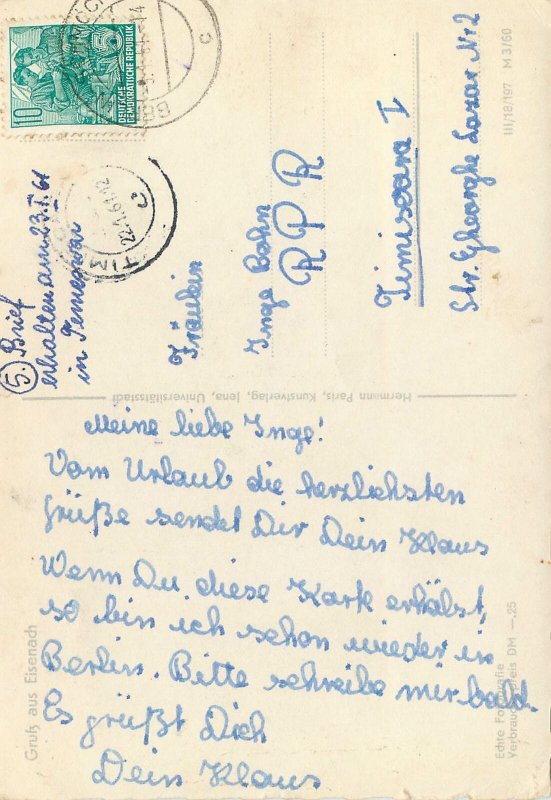 10
DEUTSCHE
DEMOKRATISCHE REPUBLIK
TIMIȘOARA
22.1.61.12
5. Brief
erhalten am 23.I.61
in Temeswar
Fräulein
Inge Bohn
R P R
Timisoara I
Str. Gheorghe Lazar Nr 2
III/18/197 M 3/60
Hermann Paris, Kunstverlag, Jena, Universitätsstadt
Meine liebe Inge!
Vom Urlaub die herzlichsten
Grüße sendet Dir Dein Klaus
Wenn Du diese Karte erhälst,
so bin ich schon wieder in
Berlin. Bitte schreibe mir bald.
Es grüßt Dich
Dein Klaus
Gruß aus Eisenach
Echte Fotografie
Verbraucherpreis DM —.25